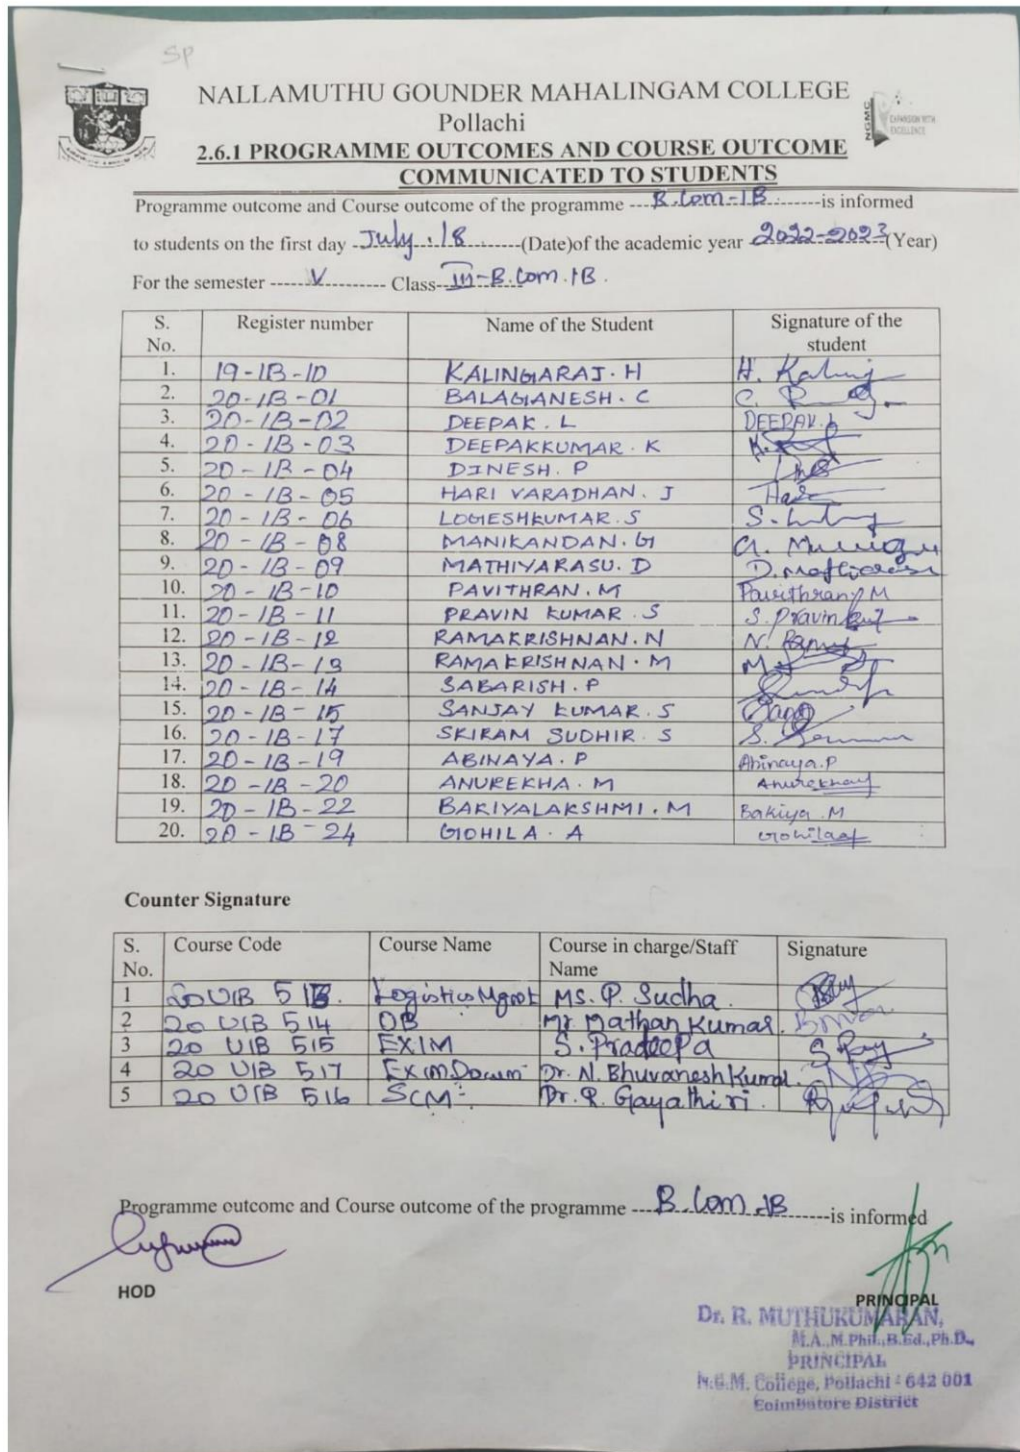 SP
NALLAMUTHU GOUNDER MAHALINGAM COLLEGE
Pollachi
NGMC EXPANSION WITH EXCELLENCE
2.6.1 PROGRAMME OUTCOMES AND COURSE OUTCOME
COMMUNICATED TO STUDENTS
Programme outcome and Course outcome of the programme ---B.Com-IB-------is informed
to students on the first day -July, 18---------(Date)of the academic year 2022-2023(Year)
For the semester ------V---------- Class--III-B.Com.IB.
S. No. Register number Name of the Student Signature of the student
1. 19-IB-10 KALINGARAJ. H H. Kaling
2. 20-IB-01 BALAGANESH. C C.
3. 20-IB-02 DEEPAK. L DEEPAK.L
4. 20-IB-03 DEEPAKKUMAR. K
5. 20-IB-04 DINESH. P
6. 20-IB-05 HARI VARADHAN. J Hari
7. 20-IB-06 LOGESHKUMAR. S S.
8. 20-IB-08 MANIKANDAN. G G.
9. 20-IB-09 MATHIYARASU. D D. Mathiarasu
10. 20-IB-10 PAVITHRAN. M Pavithran M
11. 20-IB-11 PRAVIN KUMAR. S S. Pravin
12. 20-IB-12 RAMAKRISHNAN. N N.
13. 20-IB-13 RAMAKRISHNAN. M M
14. 20-IB-14 SABARISH. P
15. 20-IB-15 SANJAY KUMAR. S
16. 20-IB-17 SRIRAM SUDHIR. S S.
17. 20-IB-19 ABINAYA. P Abinaya.P
18. 20-IB-20 ANUREKHA. M Anurekha
19. 20-IB-22 BAKIYALAKSHMI. M Bakiya.M
20. 20-IB-24 GOHILA. A Gohila
Counter Signature
S. No. Course Code Course Name Course in charge/Staff Name Signature
1 20 UIB 513. Logistics Mgmt Ms. P. Sudha.
2 20 UIB 514 OB Mr. Mathan Kumar.
3 20 UIB 515 EXIM S. Pradeepa
4 20 UIB 517 Exim.Docum Dr. N. Bhuvanesh Kumar.
5 20 UIB 516 SCM Dr. R. Gayathiri.
Programme outcome and Course outcome of the programme ----B.Com.IB-------is informed
HOD
PRINCIPAL
Dr. R. MUTHUKUMARAN,
M.A.,M.Phil.,B.Ed.,Ph.D.,
PRINCIPAL
N.G.M. College, Pollachi - 642 001
Coimbatore District